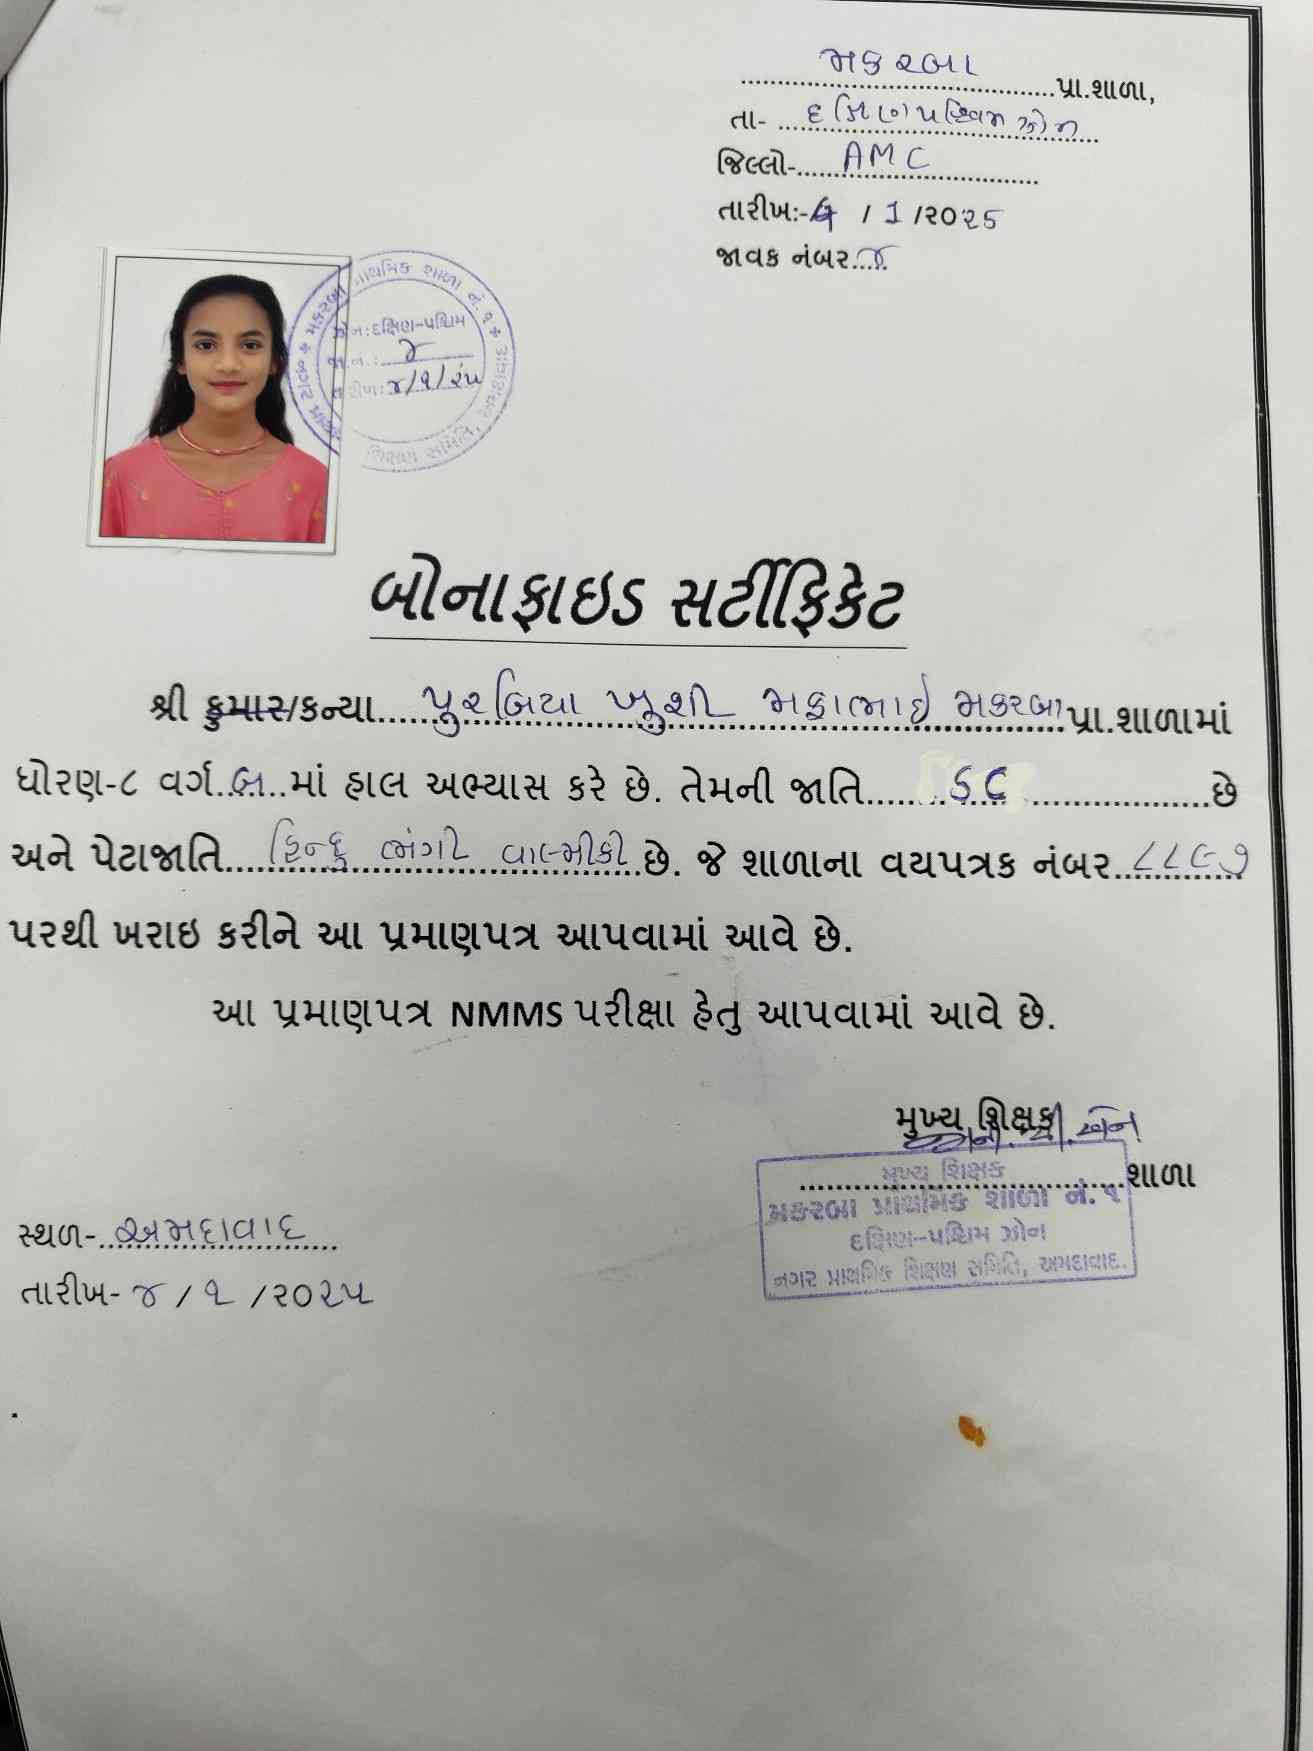 મકરબા પ્રા.શાળા,
તા- દક્ષિણ પશ્ચિમ ઝોન
જિલ્લો- AMC
તારીખ:-4 / 1 /૨૦૨5
જાવક નંબર ૪
મકરબા પ્રાથમિક શાળા નં. ૧
ઝોન:દક્ષિણ-પશ્ચિમ
જા.ન. : ૪
તારીખ: ૪/૧/૨૫
શિક્ષણ સમિતિ, અમદાવાદ
બોનાફાઇડ સર્ટીફિકેટ
શ્રી કુમાર/કન્યા પુરબિયા ખુશી મફાભાઇ મકરબા પ્રા.શાળામાં
ધોરણ-૮ વર્ગ બ માં હાલ અભ્યાસ કરે છે. તેમની જાતિ SC છે
અને પેટાજાતિ હિન્દુ ભંગી વાલ્મીકી છે. જે શાળાના વયપત્રક નંબર ૮૮૯૭
પરથી ખરાઇ કરીને આ પ્રમાણપત્ર આપવામાં આવે છે.
આ પ્રમાણપત્ર NMMS પરીક્ષા હેતુ આપવામાં આવે છે.
મુખ્ય શિક્ષક
શાળા
મુખ્ય શિક્ષક
મકરબા પ્રાથમિક શાળા નં. ૧
દક્ષિણ-પશ્ચિમ ઝોન
નગર પ્રાથમિક શિક્ષણ સમિતિ, અમદાવાદ.
સ્થળ- અમદાવાદ
તારીખ- ૪ / ૧ /૨૦૨૫